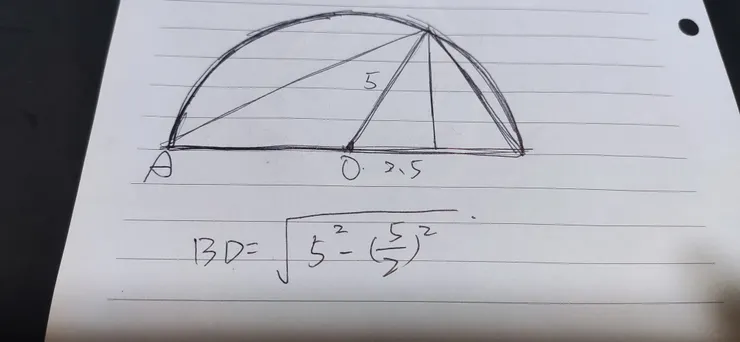 5
A O. 2.5
BD=√5²-(5/2)²